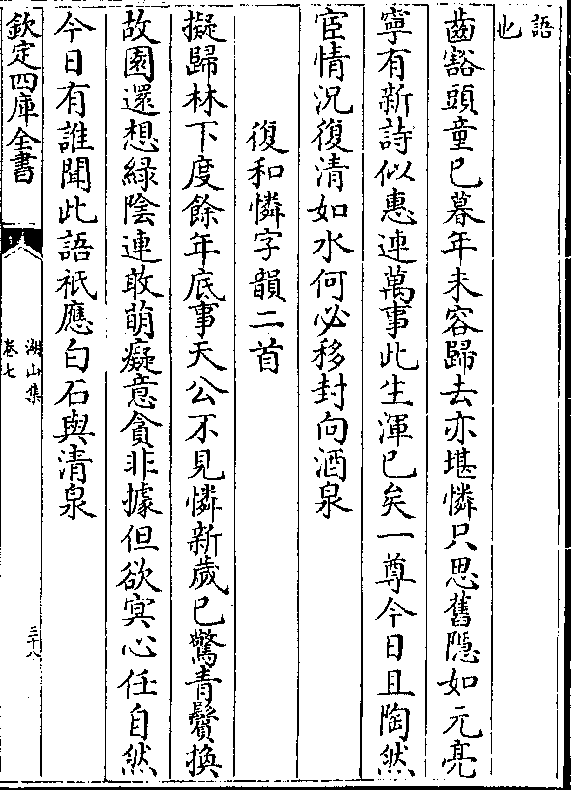 語
也
齒豁頭童已暮年未容歸去亦堪憐只思舊隱如元亮
寧有新詩似惠連萬事此生渾已矣一尊今日且陶然
宦情況復清如水何必移封向酒泉
復和憐字韻二首
擬歸林下度餘年底事天公不見憐新歲已驚青鬢換
故園還想綠陰連敢萌癡意貪非據但欲冥心任自然
今日有誰聞此語祇應白石與清泉
欽定四庫全書
湖山集
卷七
三十八